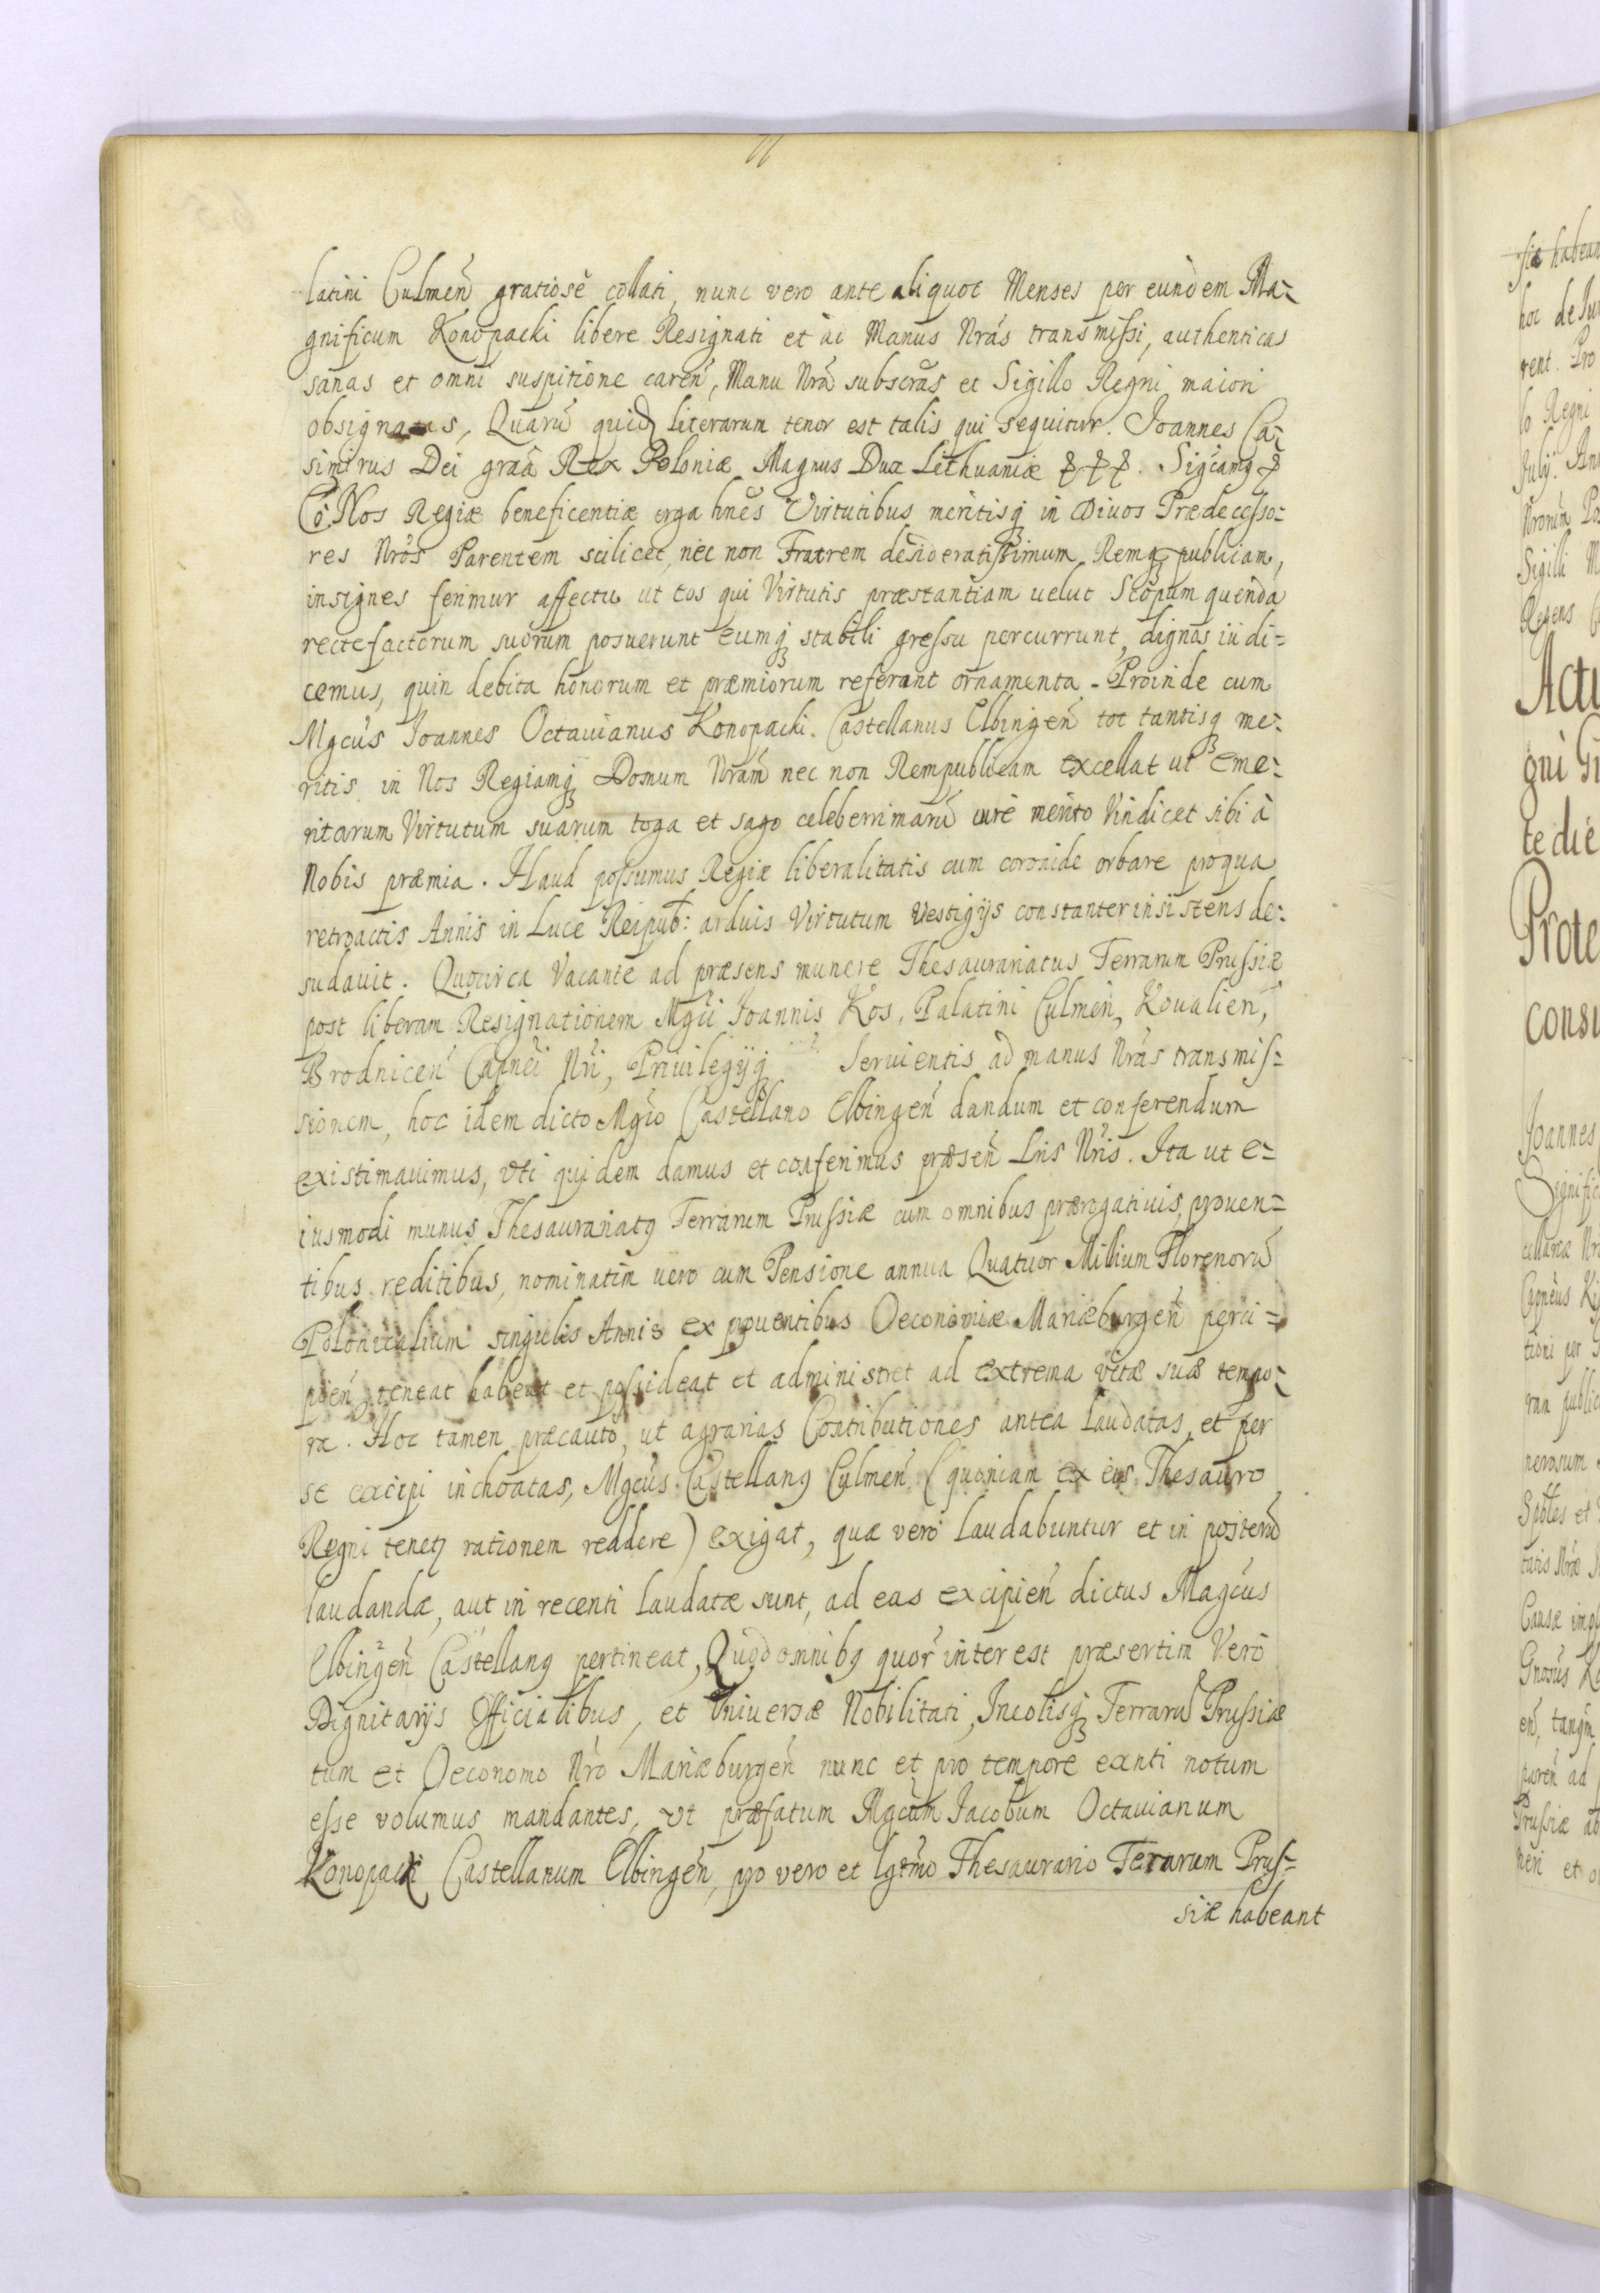 latini Culmen̄ gratiosè collati, nunc vero ante aliquot Menses per eundem Ma-
gnificum Konopacki libere Resignati et ai Manus Nrás transmissi, authenticas
sanas et omni suspitione careń, Manu Nrā subscrās et Sigillo Regni maiori
obsignatas, Quarū quid literarum tenor est talis qui sequitur. Joannes Ca-
simirus Dei graā Rex Poloniæ Magnus Dux Lithuaniæ
Nos Regiæ beneficentiæ erga Virtutibus meritisq in Divos Prædecesso-
res Nros Parentem scilicet, nec non Fratrem desideratissimum Remq publicam,
insignes ferimur affectu ut eos qui Virtutis præstantiam velut Scopum quendā
rectefactorum suorum posuerunt eumq stabili gressu percurrunt, dignos iudi-
cemus, quin debita honorum et præmiorum referant ornamenta. Proinde cum
Mgcus Joannes Octavianus Konopacki. Castellanus Elbingeń tot tantisq me-
ritis in Nos Regiamq Domum Nram̄ nec non Rempublicam excellat ut eme-
ritarum Virtutum suarum toga et sago celeberrimarū iure merito Vindicet sibi à
Nobis præmia. Haud possumus Regiæ liberalitatis eum coronide orbare pro qua
retroactis Annis in Luce Reipub: arduis Virtutum Vestigijs constanter insistens de-
sudavit. Quocirca Vacante ad præsens munere Thesaurariatus Terrarum Prussiæ
post liberam Resignationem Mgci Joannis Kos, Palatini Culmen̄, Kovalien̄,
Brodnicen̄ Capnei Nri, Privilegijq Servientis ad manus Nras transmis-
sionem, hoc idem dicto Mgco Castellano Elbingen̄ dandum et conferendum
existimavimus, uti quidem damus et conferimus præsen̄ Lris Nris. Ita ut e-
iusmodi munus Thesaurariatq Terrarum Prussiæ cum omnibus prærogativis, proven-
tibus reditibus, nominatim vero cum Pensione annua Quatuor Millium Florenorū
Polonicalium singulis Annis ex proventibus Oeconomiæ Mariæburgen̄ perci-
pień teneat habeat et possideat et administret ad extrema vitæ suæ tempo-
ra. Hoc tamen præcautō, ut agrarias Contributiones antea Laudatas, et per
se excipi inchoatas, Mgcus Castellanq Culmen̄ (quoniam ex eis Thesauro
Regni tenetq rationem reddere) exigat, quæ vero Laudabuntur et in posterū
laudandæ, aut in recenti Laudatæ sunt, ad eas excipień dictus Magcus
Elbingen̄ Castellanq pertineat, Quod omnibq quor̄ interest præsertim Vero
Dignitarijs Officialibus, et Universæ Nobilitati, Incolisq Terrarū Prussiæ
tum et Oeconomo Nro Mariæburgen̄ nunc et pro tempore exnti notum
esse volumus mandantes, ut præfatum Mgcum Jacobum Octavianum
Konopacki Castellanum Elbingen̄, pro vero et lgtmo Thesaurario Terrarum Prus-
siæ habeant